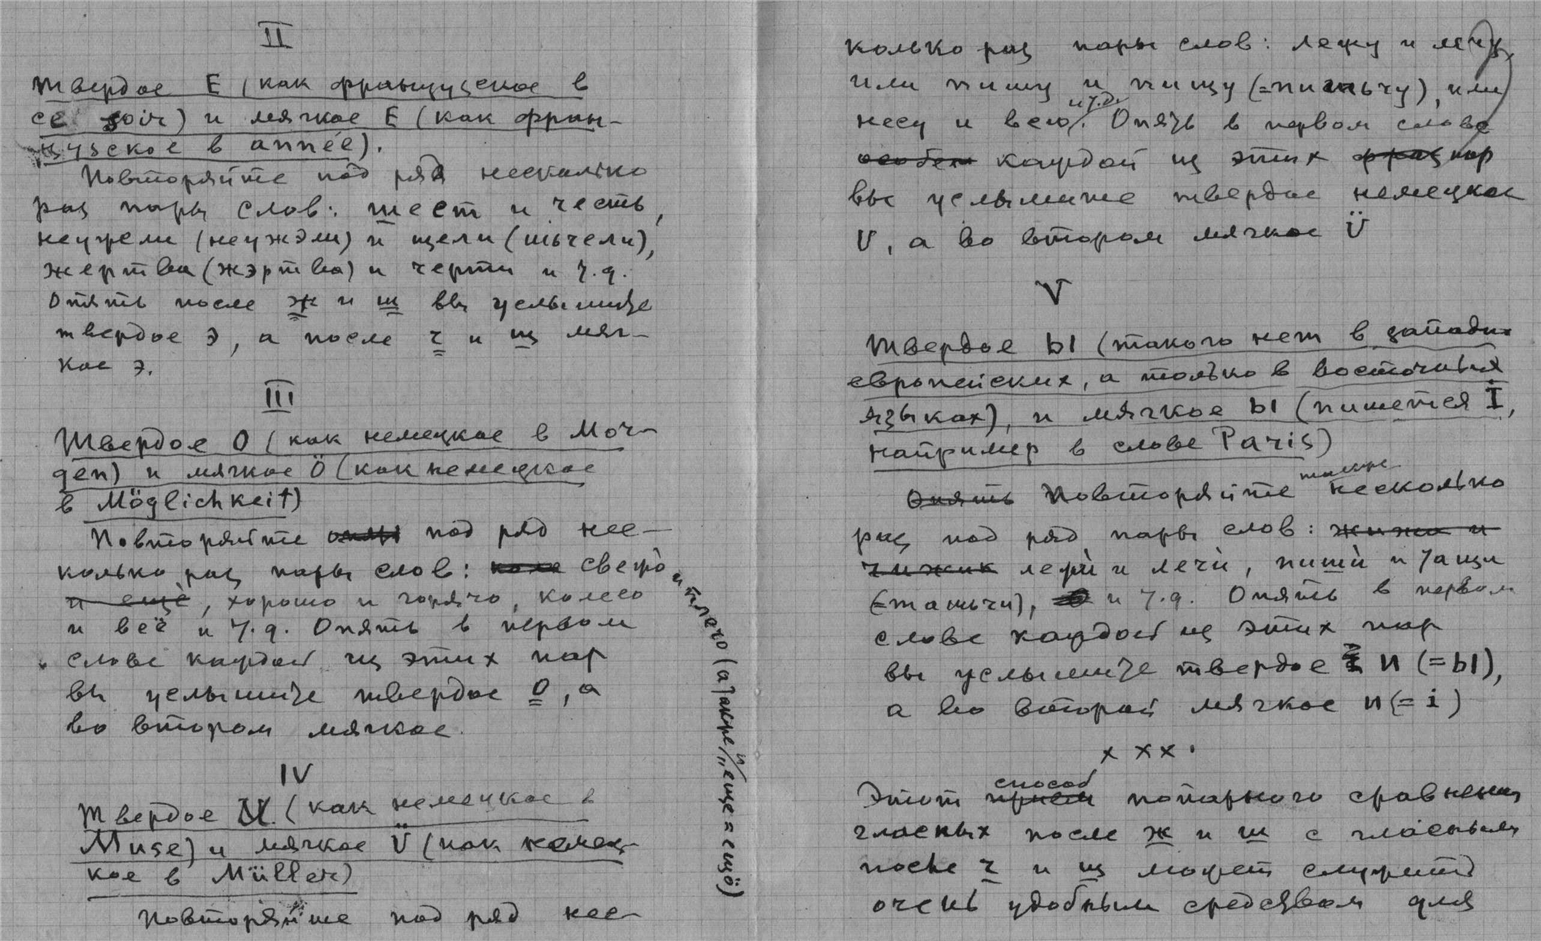 II
Твердое Е (как французское в
ce soir) и мягкое Е (как фран-
цузское в année).
Повторяйте под ряд несколько
раз пары слов: шест и честь,
неужели (неужэли) и щели (шьчели),
жертва (жэртва) и черти и т.д.
Опять после ж и ш вы услышите
твердое э, а после ч и щ мяг-
кое э.
III
Твердое О (как немецкое в Mor-
gen) и мягкое Ö (как немецкое
в Möglichkeit)
Повторяйте опять под ряд нес-
колько раз пары слов: сверло
и еще, хорошо и горячо, колесо
и всё и т.д. Опять в первом
слове каждой из этих пар
вы услышите твердое о, а
во втором мягкое.
и плечо (а также и "еще = ещö)
IV
Твердое U (как немецкое в
Muse) и мягкое Ü (как немец-
кое в Müller)
Повторяйте под ряд нес-
колько раз пары слов: лежу и лечу,
или пишу и пищу (=пишьчу), или
несу и всю. и т.д. Опять в первом слове
особен каждой из этих фраз пар
вы услышите твердое немецкое
U, а во втором мягкое Ü
V
Твердое Ы (такого нет в западно
европейских, а только в восточных
языках), и мягкое Ы (пишется I,
например в слове Paris)
Опять Повторяйте также несколько
раз под ряд пары слов: жижа и
чижик лежи и лечи, пиши и тащи
(=ташьчи), и т.д. Опять в первом
слове каждой из этих пар
вы услышите твердое И (=Ы),
а во второй мягкое И (= i)
× × × .
Этот прием способ попарного сравнения
гласных после ж и ш с гласными
после ч и щ может служить
очень удобным средством для